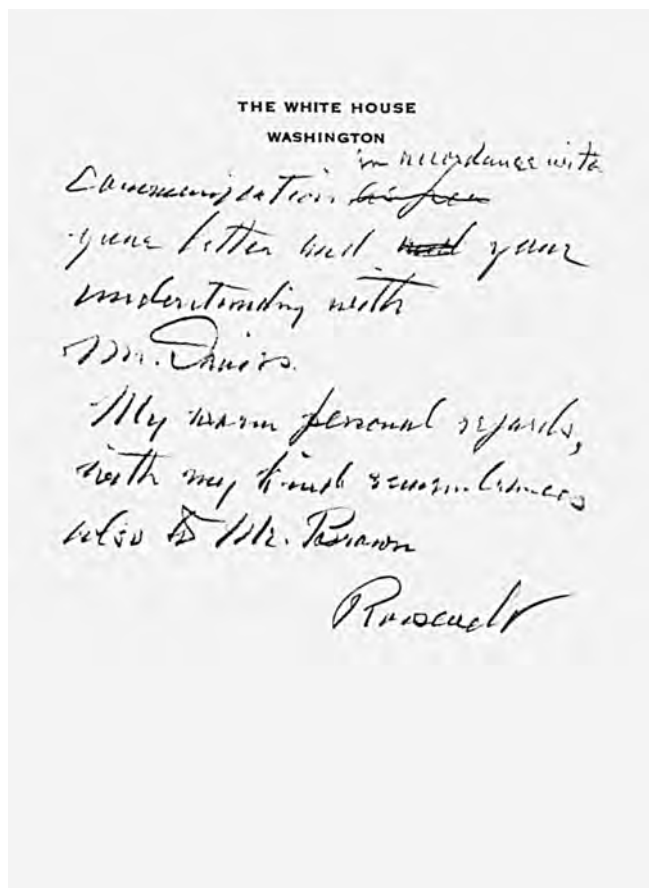 THE WHITE HOUSE
WASHINGTON
in accordance with
communication
your letter and your
understanding with
Mr. Davies.
My warm personal regards,
with my kind remembrances
also to Mr. Brown
Roosevelt